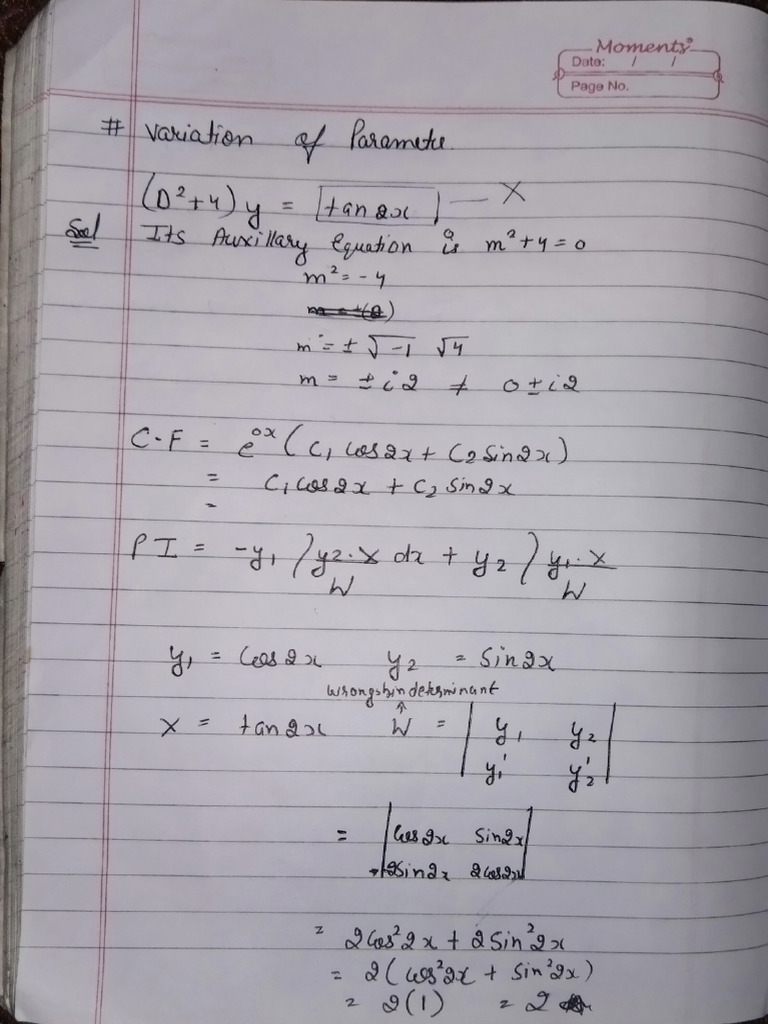 Moments
Date: / /
Page No.
# Variation of Paramete.
(D²+4) y = tan 2x — X
Sol Its Auxillary Equation is m²+4=0
m² = -4
m = ± √-1 √4
m = ± i2 ≠ 0 ± i2
C.F = e^0x (C₁ cos2x + C₂ Sin2x)
= C₁ cos2x + C₂ Sin2x
=
P I = -y₁ ∫ y₂·X/W dx + y₂ ∫ y₁·X/W
y₁ = Cos2x y₂ = Sin2x
wrongshin determinant
↑
X = tan2x W = | y₁ y₂ |
| y₁' y₂' |
= | Cos2x Sin2x |
| -2Sin2x 2Cos2x |
= 2Cos²2x + 2Sin²2x
= 2(cos²2x + Sin²2x)
= 2(1) = 2